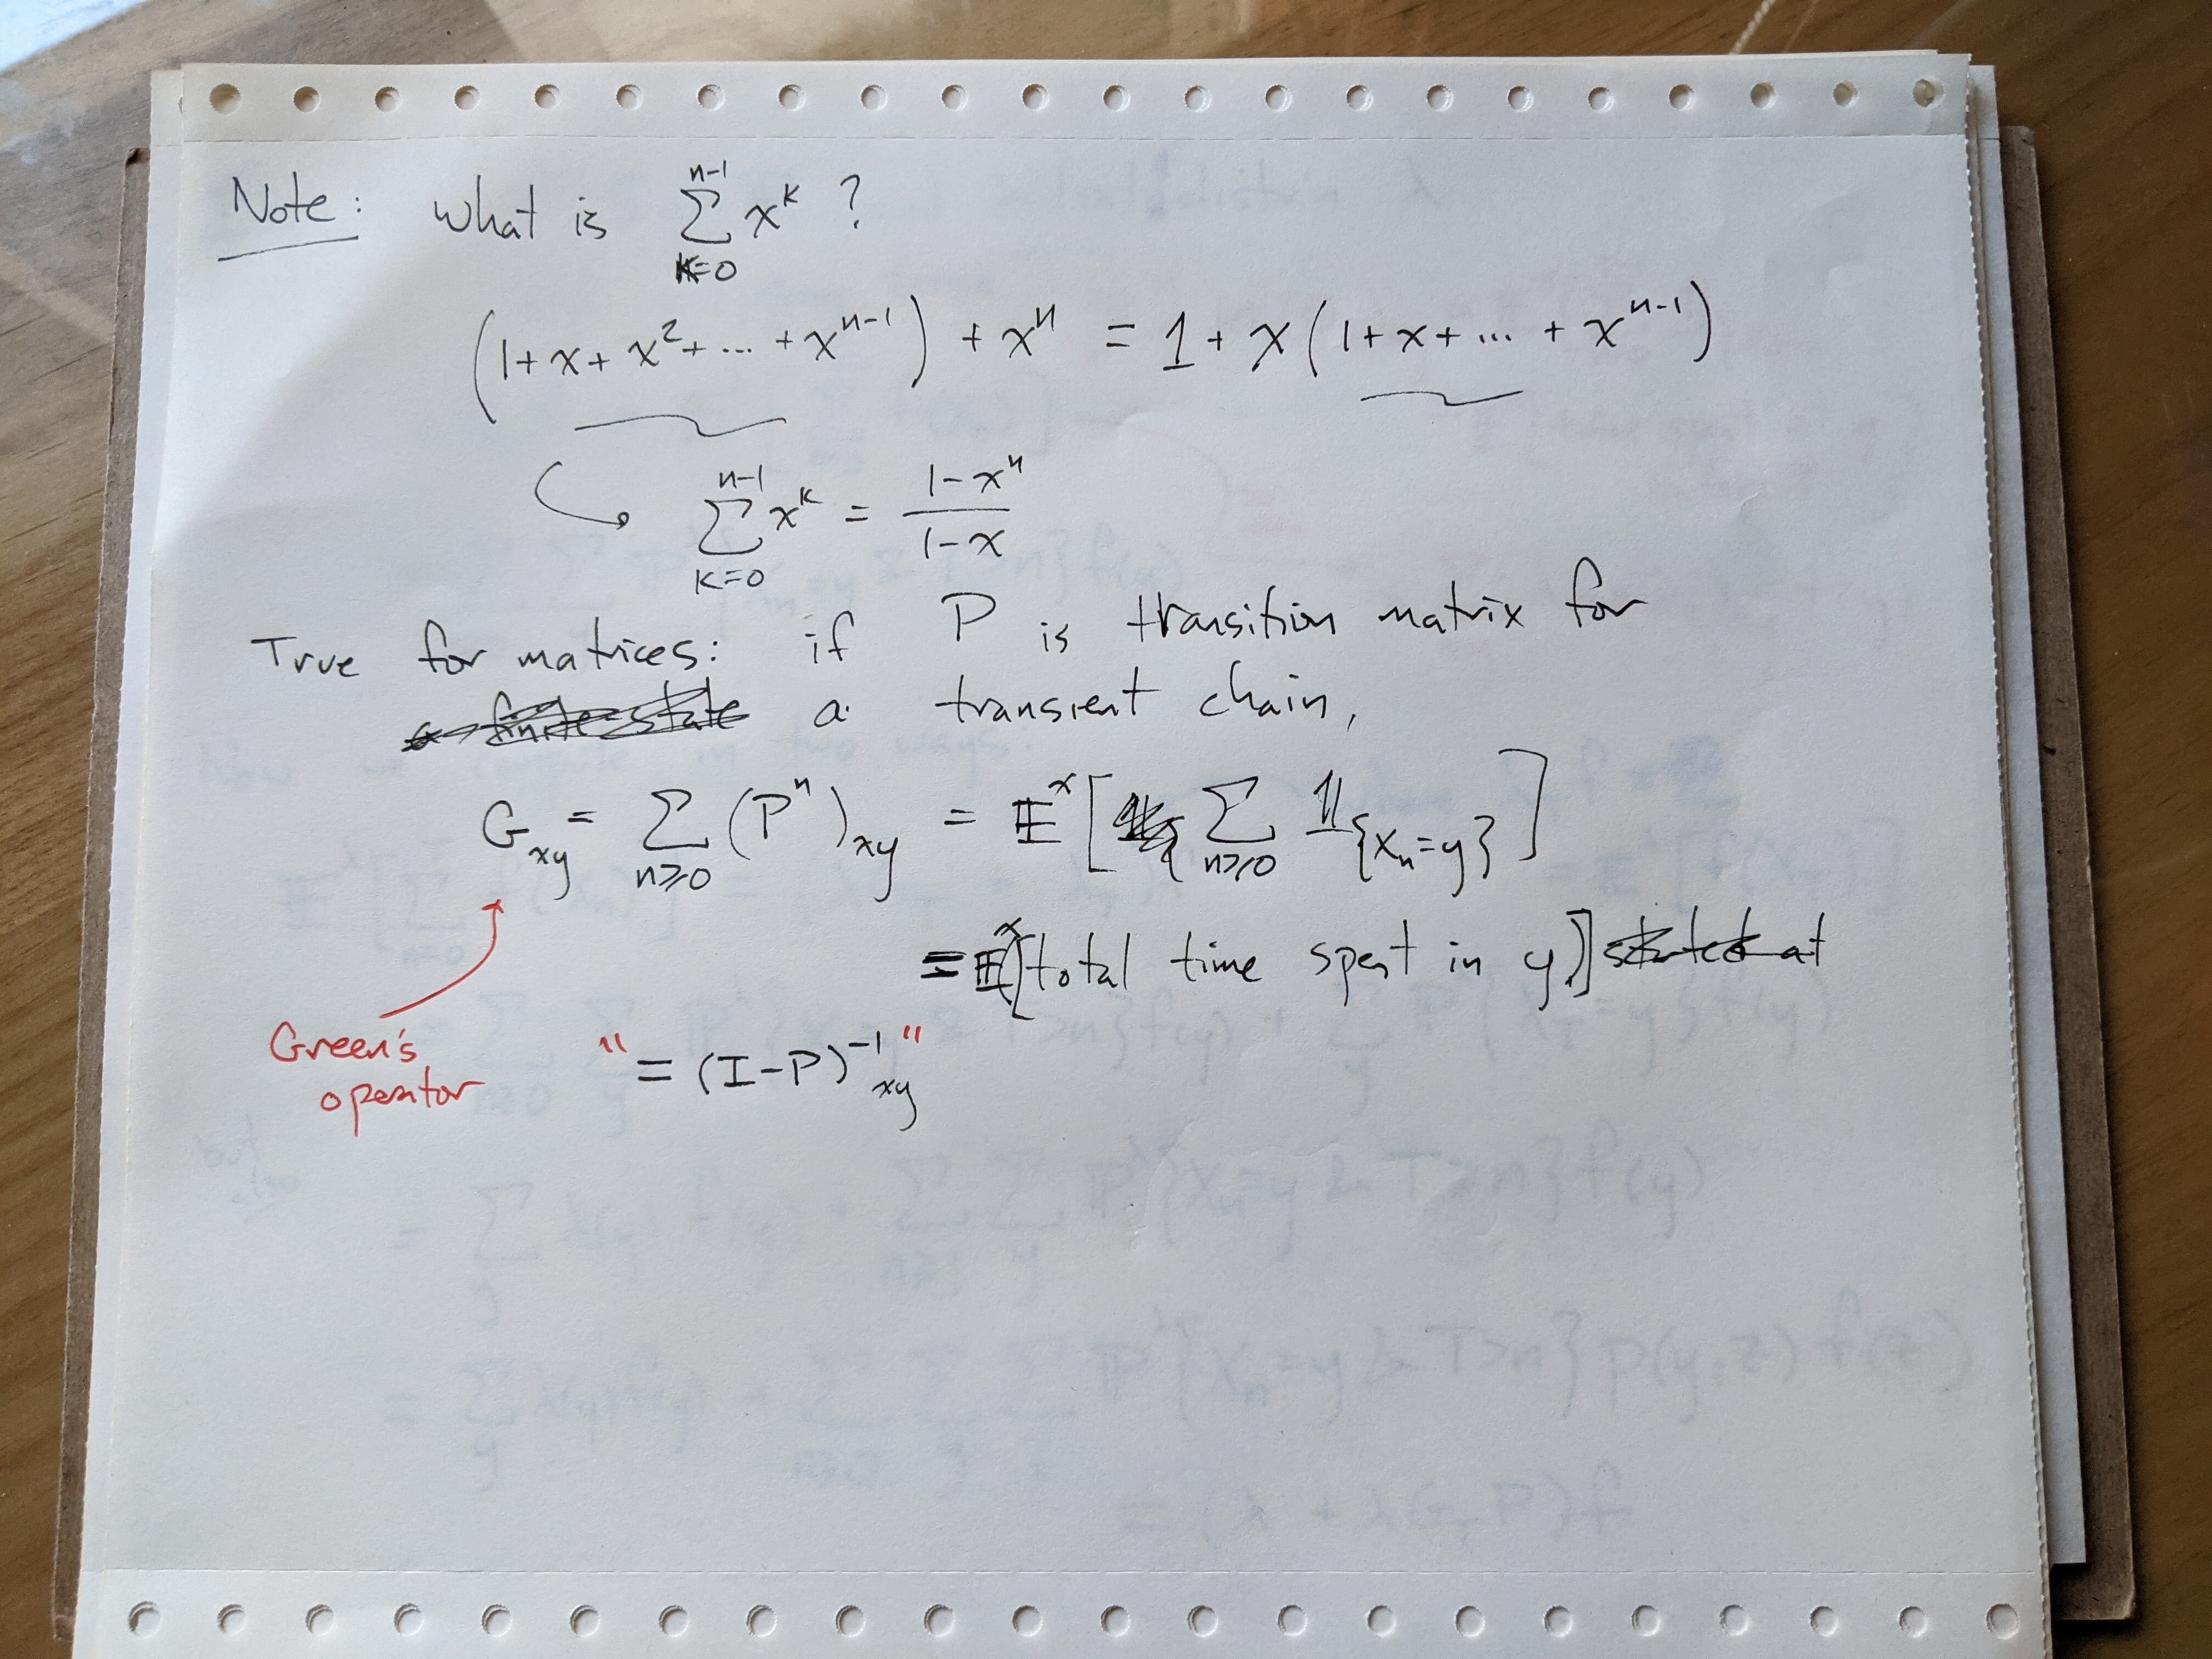 Note: What is ∑_{k=0}^{n-1} x^k ?
(1+x+x²+...+x^{n-1}) + x^n = 1 + x(1+x+...+x^{n-1})
∑_{k=0}^{n-1} x^k = (1-x^n)/(1-x)
True for matrices: if P is transition matrix for
a finite state a transient chain,
G_{xy} = ∑_{n≥0} (P^n)_{xy} = 𝔼^x[∑_{n≥0} 𝟙_{X_n=y}]
= 𝔼^x[total time spent in y] started at
Green's
operator
"= (I-P)^{-1}_{xy}"